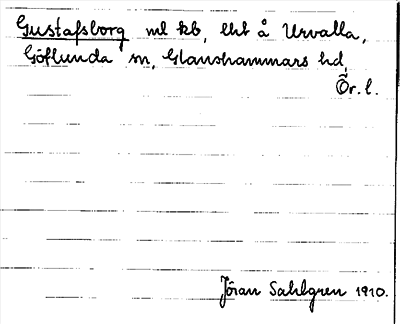 Gustafsborg ml kb, lht å Urvalla,
Göllunda sn, Glanshammars hd,
Ör. l.
Jöran Sahlgren 1910.